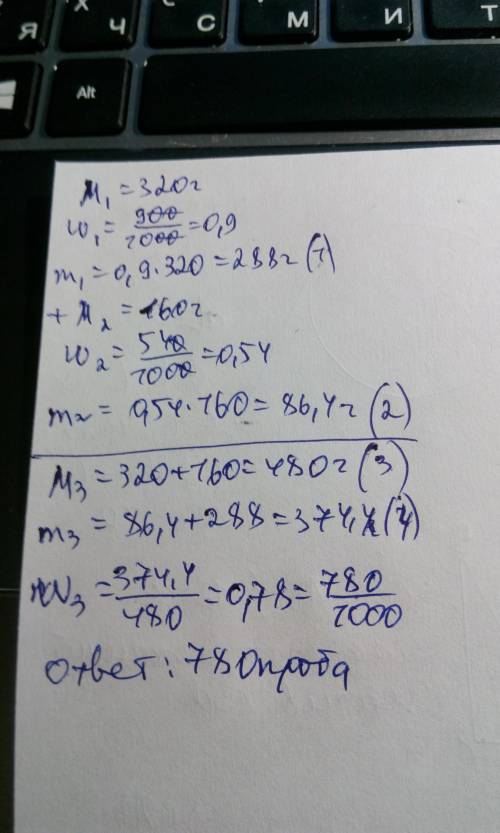 Я Ч С М И Т
Alt
M₁ = 320г
w₁ = 900/1000 = 0,9
m₁ = 0,9·320 = 288г (1)
+ M₂ = 160г
w₂ = 540/1000 = 0,54
m₂ = 0,54·160 = 86,4г (2)
M₃ = 320+160 = 480г (3)
m₃ = 86,4+288 = 374,4 (4)
W₃ = 374,4/480 = 0,78 = 780/1000
ответ: 780 проба